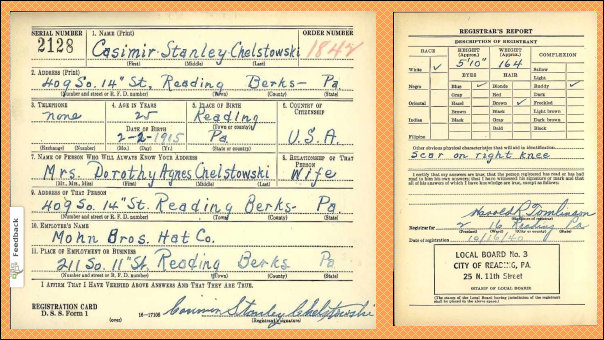 SERIAL NUMBER 1. NAME (Print) ORDER NUMBER
2128 Casimir Stanley Chelstowski 1842
(First) (Middle) (Last)
2. ADDRESS (Print)
409 So. 14" St. Reading Berks- Pa
(Number and street or R. F. D. number) (Town) (County) (State)
3. TELEPHONE 4. AGE IN YEARS 5. PLACE OF BIRTH 6. COUNTRY OF CITIZENSHIP
none 25 Reading
DATE OF BIRTH (Town or county)
2-2-1915 Pa. U.S.A.
(Exchange) (Number) (Mo.) (Day) (Yr.) (State or country)
7. NAME OF PERSON WHO WILL ALWAYS KNOW YOUR ADDRESS 8. RELATIONSHIP OF THAT PERSON
Mrs. Dorothy Agnes Chelstowski Wife
(Mr., Mrs., Miss) (First) (Middle) (Last)
9. ADDRESS OF THAT PERSON
409 So. 14" St. Reading Berks- Pa
(Number and street or R. F. D. number) (Town) (County) (State)
10. EMPLOYER'S NAME
Mohn Bros. Hat Co.
11. PLACE OF EMPLOYMENT OR BUSINESS
211 So. 11" St. Reading Berks Pa
(Number and street or R. F. D. number) (Town) (County) (State)
I AFFIRM THAT I HAVE VERIFIED ABOVE ANSWERS AND THAT THEY ARE TRUE.
REGISTRATION CARD
D. S. S. Form 1 (over) 16-17105 Casimir Stanley Chelstowski
(Registrant's signature)
Feedback
REGISTRAR'S REPORT
DESCRIPTION OF REGISTRANT
RACE HEIGHT (Approx.) WEIGHT (Approx.) COMPLEXION
5'10" 164
White ✓ Sallow
EYES HAIR Light
Negro Blue ✓ Blonde Ruddy ✓
Gray Red Dark
Oriental Hazel Brown ✓ Freckled
Brown Black Light brown
Indian Black Gray Dark brown
Bald Black
Filipino
Other obvious physical characteristics that will aid in identification
Scar on right knee
I certify that my answers are true; that the person registered has read or has had read to him his own answers; that I have witnessed his signature or mark and that all of his answers of which I have knowledge are true, except as follows:
Harold R. Tomlinson
Registrar for 2 16 Reading Pa
Date of registration 10/16/40
LOCAL BOARD No. 3
CITY OF READING, PA.
25 N. 11th Street
STAMP OF LOCAL BOARD
(The stamp of the Local Board having jurisdiction of the registrant shall be placed in the above space.)